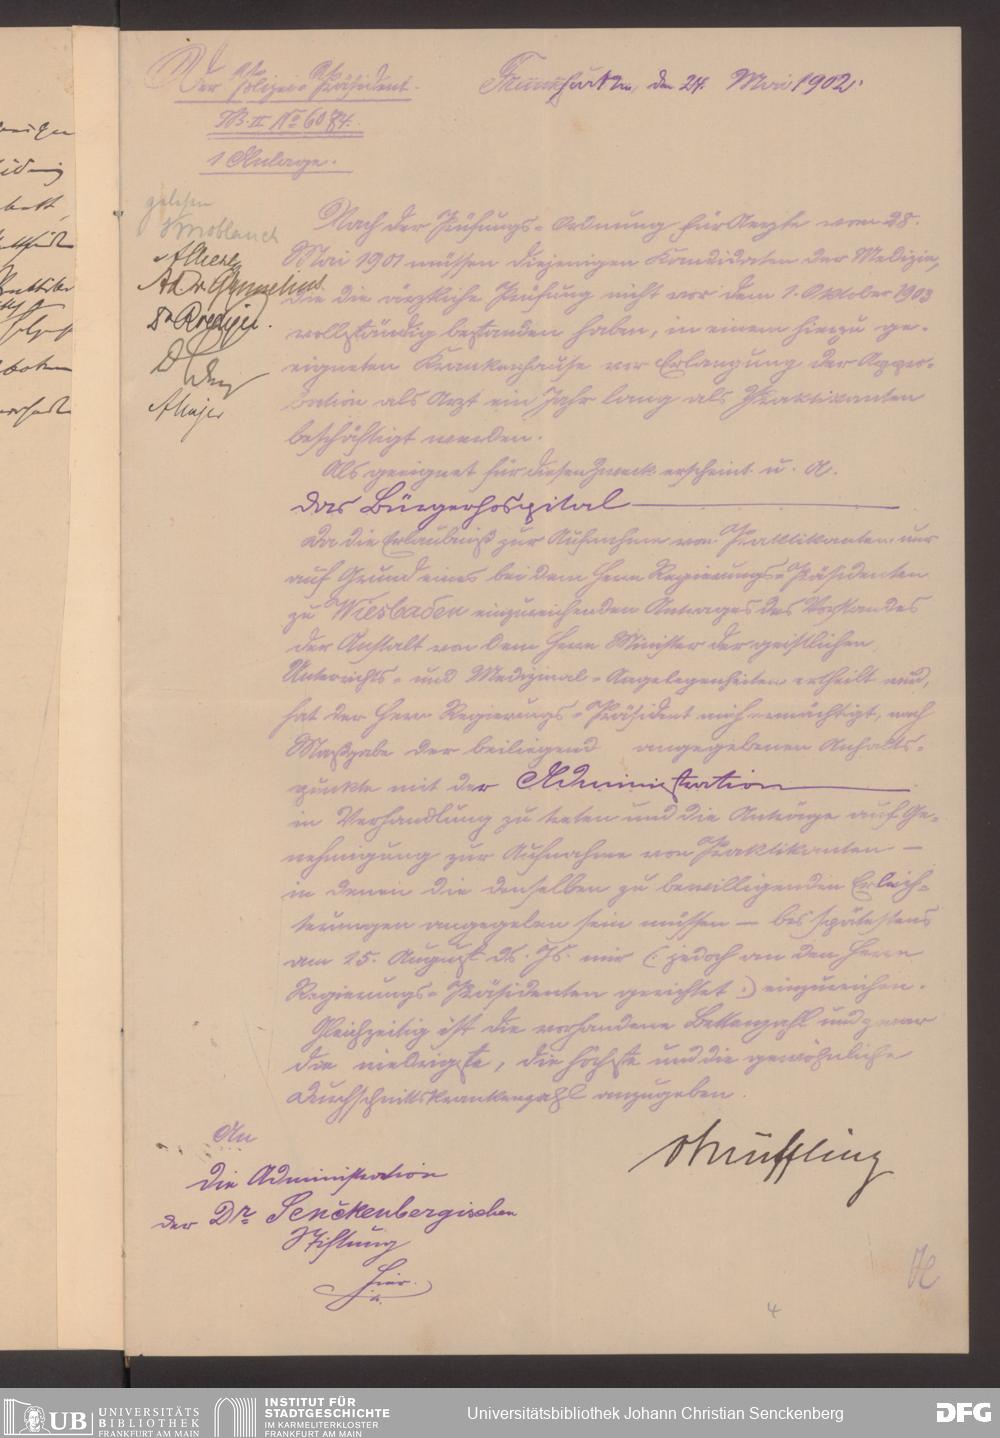 Der Polizei-Präsident.
Frankfurt M., den 24. Mai 1902.
TB. II No 6084.
1 Anlage.
gelesen
Knoblauch
Dr Roediger.
A Majer
Nach der Prüfungs-Ordnung für Aerzte vom 28.
Mai 1901 müssen diejenigen Kandidaten der Medizin,
die die ärztliche Prüfung nicht vor dem 1. Oktober 1903
vollständig bestanden haben, in einem hierzu ge-
eigneten Krankenhause vor Erlangung der Appro-
bation als Arzt ein Jahr lang als Praktikanten
beschäftigt werden.
Als geeignet für diesen Zweck erscheint u. A.
das Bürgerhospital
Da die Erlaubniß zur Aufnahme von Praktikanten nur
auf Grund eines bei dem Herrn Regierungs-Präsidenten
zu Wiesbaden einzureichenden Antrages des Vorstandes
der Anstalt von dem Herrn Minister der geistlichen,
Unterrichts- und Medizinal-Angelegenheiten ertheilt wird,
hat der Herr Regierungs-Präsident mich ermächtigt, nach
Maßgabe der beiliegend angegebenen Anhalts-
punkte mit der Administration
in Verhandlung zu treten und die Anträge auf Ge-
nehmigung zur Aufnahme von Praktikanten —
in denen die denselben zu bewilligenden Erleich-
terungen angegeben sein müssen — bis spätestens
am 15. August ds. Js. mir (: jedoch an den Herrn
Regierungs-Präsidenten gerichtet :) einzureichen.
Gleichzeitig ist die vorhandene Bettenzahl und zwar
die niedrigste, die höchste und die gewöhnliche
Durchschnittskrankenzahl anzugeben.
An
die Administration
der Dr. Senckenbergischen
Stiftung
hier.
vMüffling
4
UB UNIVERSITÄTS
BIBLIOTHEK
FRANKFURT AM MAIN
INSTITUT FÜR
STADTGESCHICHTE
IM KARMELITERKLOSTER
FRANKFURT AM MAIN
Universitätsbibliothek Johann Christian Senckenberg
DFG